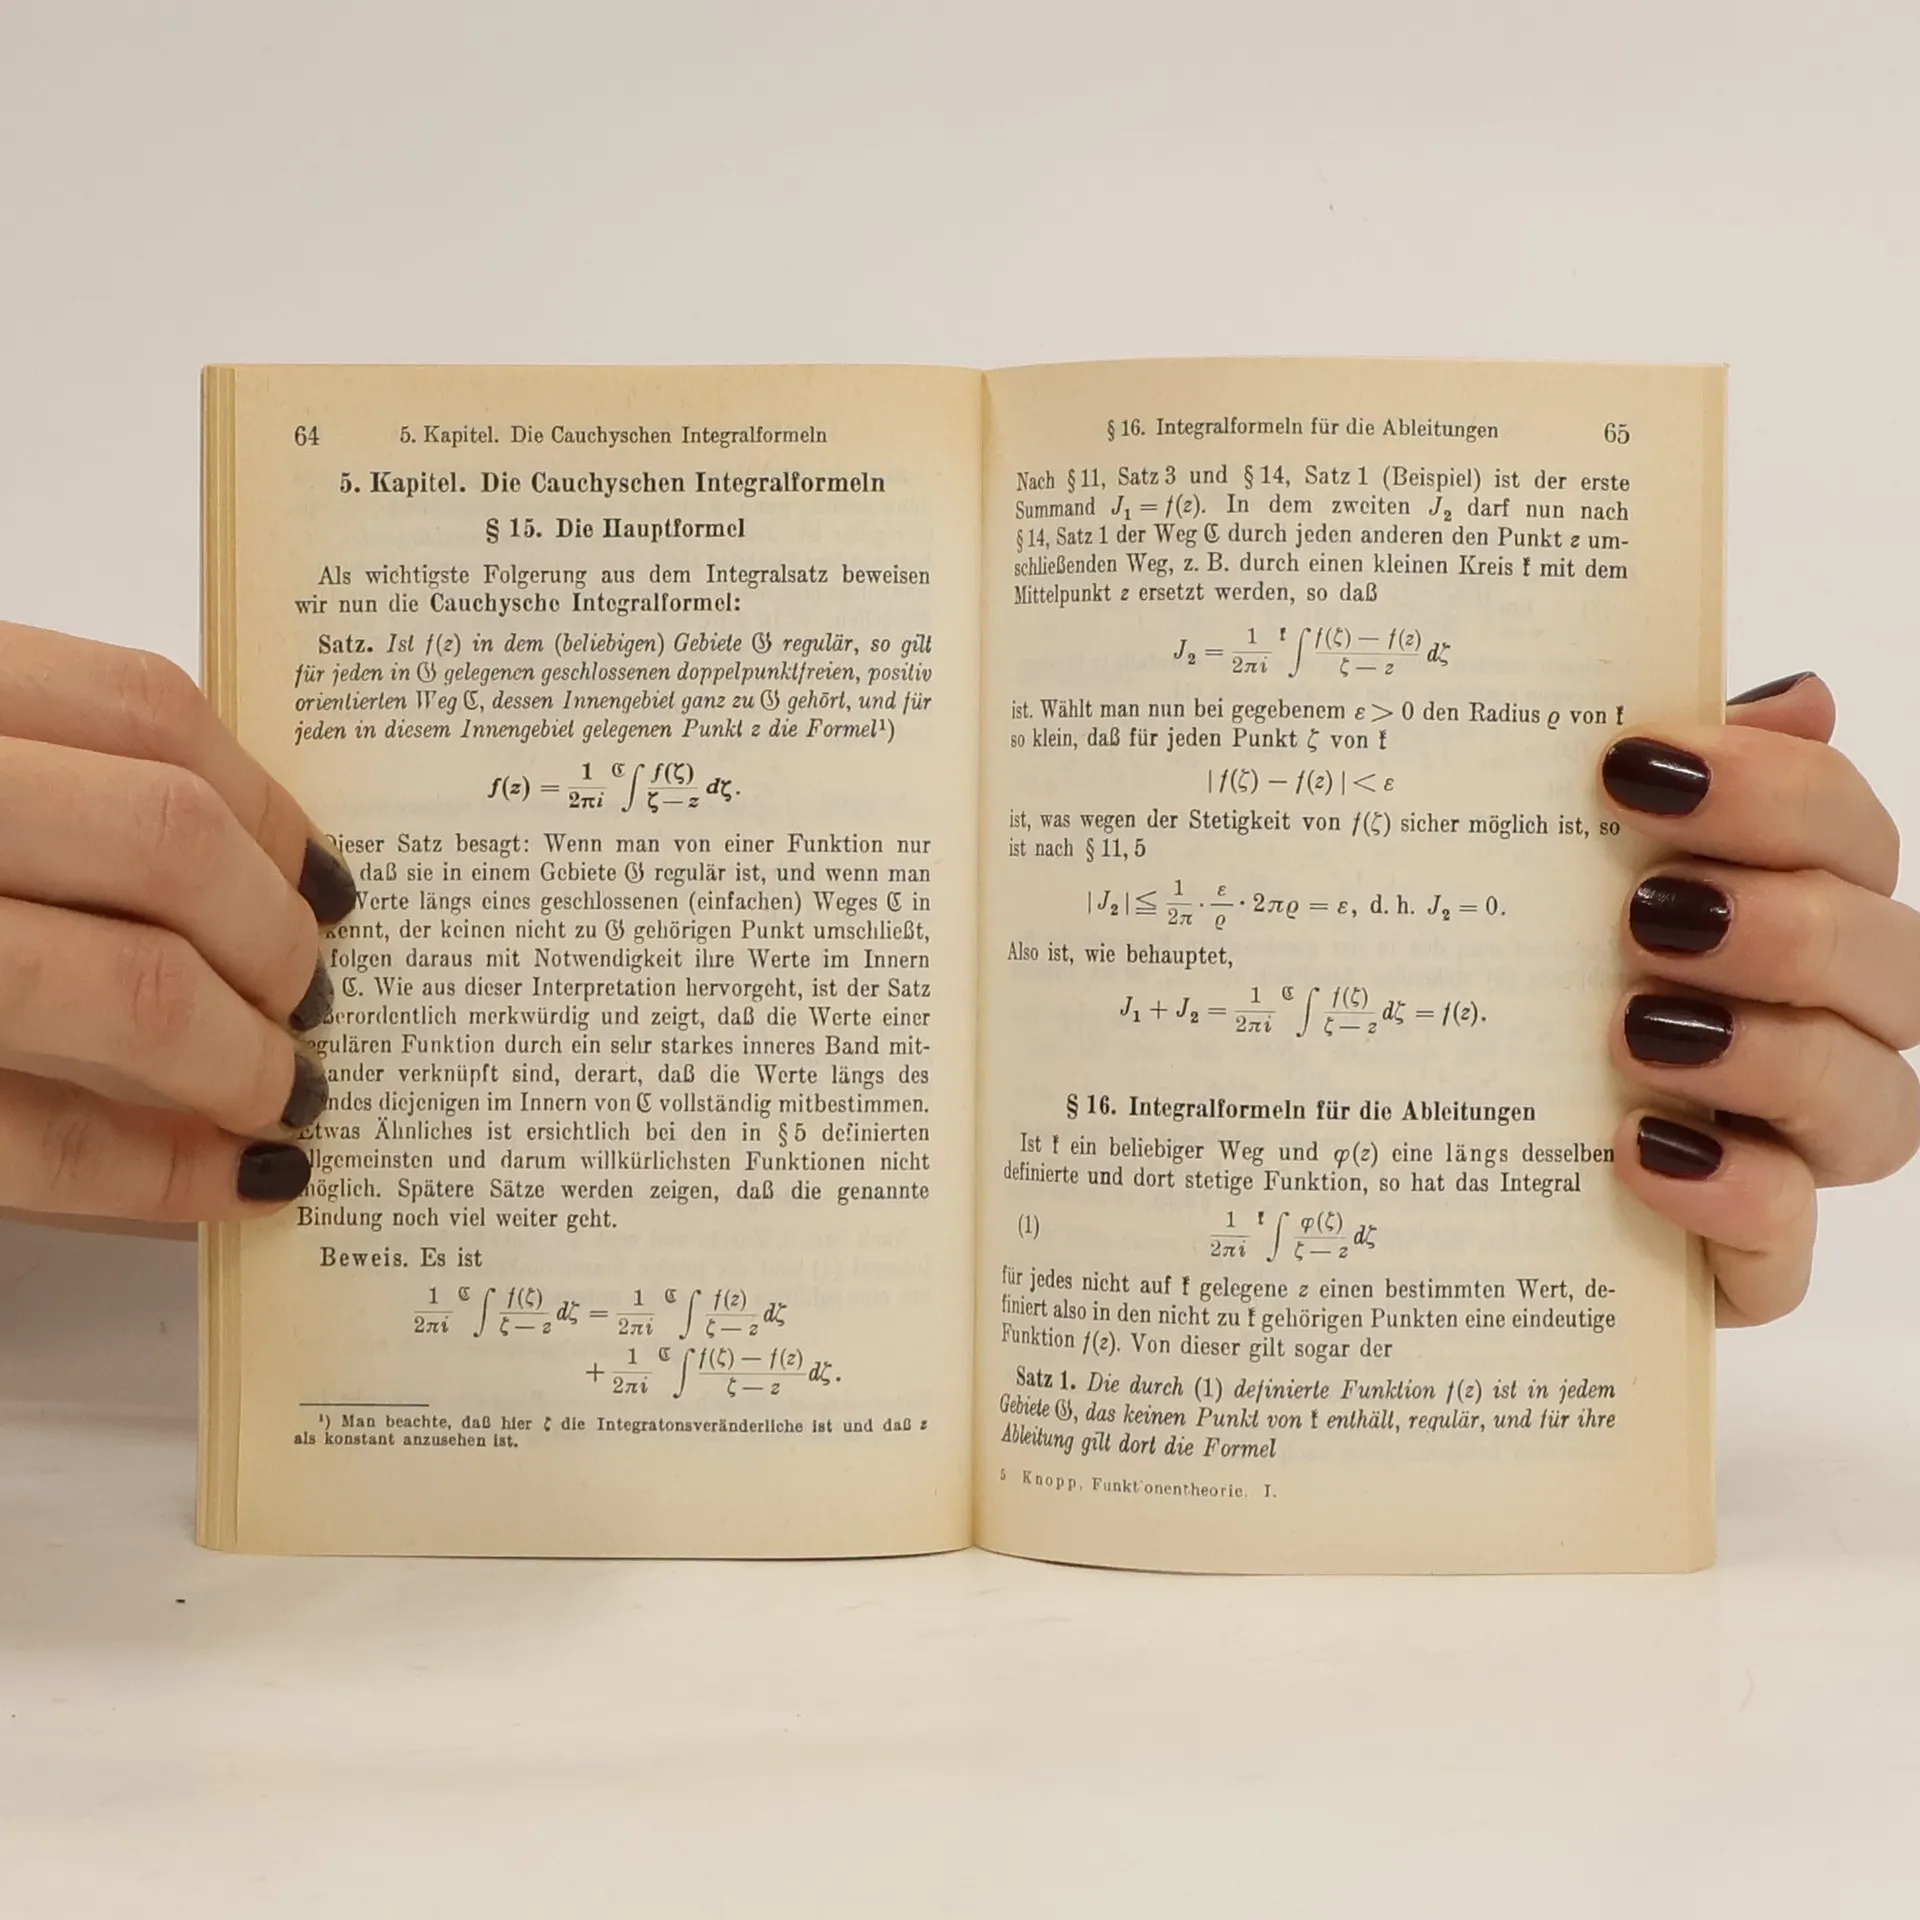 64 5. Kapitel. Die Cauchyschen Integralformeln
5. Kapitel. Die Cauchyschen Integralformeln
§ 15. Die Hauptformel
Als wichtigste Folgerung aus dem Integralsatz beweisen
wir nun die Cauchysche Integralformel:
Satz. Ist f(z) in dem (beliebigen) Gebiete 𝔊 regulär, so gilt
für jeden in 𝔊 gelegenen geschlossenen doppelpunktfreien, positiv
orientierten Weg ℭ, dessen Innengebiet ganz zu 𝔊 gehört, und für
jeden in diesem Innengebiet gelegenen Punkt z die Formel¹)
f(z) = 1/2πi ℭ∫ f(ζ)/ζ—z dζ.
Dieser Satz besagt: Wenn man von einer Funktion nur
daß sie in einem Gebiete 𝔊 regulär ist, und wenn man
Werte längs eines geschlossenen (einfachen) Weges ℭ in
kennt, der keinen nicht zu 𝔊 gehörigen Punkt umschließt,
folgen daraus mit Notwendigkeit ihre Werte im Innern
ℭ. Wie aus dieser Interpretation hervorgeht, ist der Satz
ßerordentlich merkwürdig und zeigt, daß die Werte einer
egulären Funktion durch ein sehr starkes inneres Band mit-
ander verknüpft sind, derart, daß die Werte längs des
ndes diejenigen im Innern von ℭ vollständig mitbestimmen.
Etwas Ähnliches ist ersichtlich bei den in § 5 definierten
llgemeinsten und darum willkürlichsten Funktionen nicht
möglich. Spätere Sätze werden zeigen, daß die genannte
Bindung noch viel weiter geht.
Beweis. Es ist
1/2πi ℭ∫ f(ζ)/ζ—z dζ = 1/2πi ℭ∫ f(z)/ζ—z dζ
+ 1/2πi ℭ∫ f(ζ) — f(z)/ζ — z dζ.
¹) Man beachte, daß hier ζ die Integratonsveränderliche ist und daß z
als konstant anzusehen ist.
§ 16. Integralformeln für die Ableitungen 65
Nach § 11, Satz 3 und § 14, Satz 1 (Beispiel) ist der erste
Summand J₁ = f(z). In dem zweiten J₂ darf nun nach
§ 14, Satz 1 der Weg ℭ durch jeden anderen den Punkt z um-
schließenden Weg, z. B. durch einen kleinen Kreis 𝔨 mit dem
Mittelpunkt z ersetzt werden, so daß
J₂ = 1/2πi 𝔨∫ f(ζ) — f(z)/ζ — z dζ
ist. Wählt man nun bei gegebenem ε > 0 den Radius ϱ von 𝔨
so klein, daß für jeden Punkt ζ von 𝔨
| f(ζ) — f(z) | < ε
ist, was wegen der Stetigkeit von f(ζ) sicher möglich ist, so
ist nach § 11, 5
| J₂ | ≦ 1/2π · ε/ϱ · 2πϱ = ε, d. h. J₂ = 0.
Also ist, wie behauptet,
J₁ + J₂ = 1/2πi ℭ∫ f(ζ)/ζ — z dζ = f(z).
§ 16. Integralformeln für die Ableitungen
Ist 𝔨 ein beliebiger Weg und φ(z) eine längs desselben
definierte und dort stetige Funktion, so hat das Integral
(1) 1/2πi 𝔨∫ φ(ζ)/ζ — z dζ
für jedes nicht auf 𝔨 gelegene z einen bestimmten Wert, de-
finiert also in den nicht zu 𝔨 gehörigen Punkten eine eindeutige
Funktion f(z). Von dieser gilt sogar der
Satz 1. Die durch (1) definierte Funktion f(z) ist in jedem
Gebiete 𝔊, das keinen Punkt von 𝔨 enthält, regulär, und für ihre
Ableitung gilt dort die Formel
5 Knopp, Funktionentheorie. I.